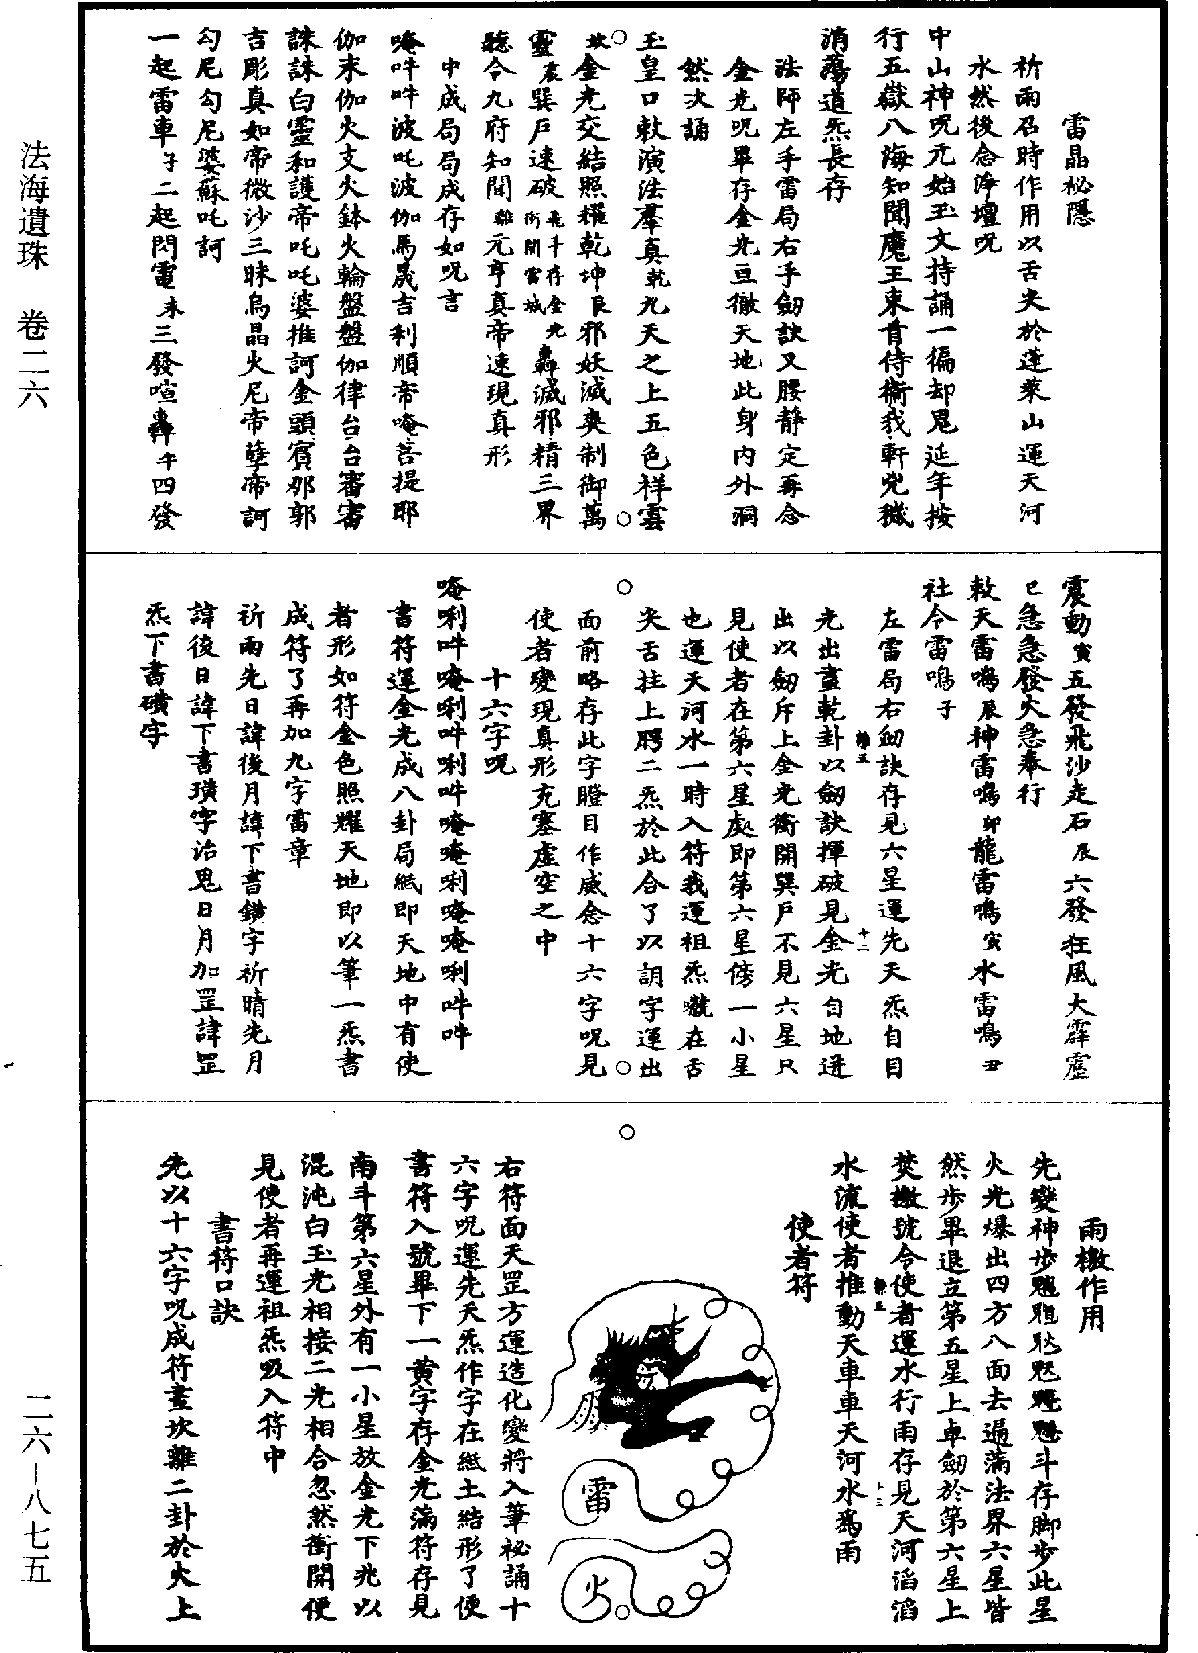 法海遺珠 卷二六
二六-八七五
雷晶祕隱
祈雨召時作用以舌尖於蓬萊山運天河
水然後念淨壇呪
中山神呪元始玉文持誦一徧却鬼延年按
行五嶽八海知聞魔王束首侍衛我軒兇穢
消蕩道炁長存
法師左手雷局右手劒訣叉腰靜定再念
金光呪畢存金光亘徹天地此身內外洞
然次誦
玉皇口敕演法羣真乾九天之上五色祥雲
坎金光交結照耀乾坤艮邪妖滅喪制御萬
靈震巽戶速破飛斗存金光衝開雷城轟滅邪精三界
聽令九府知聞離元亨真帝速現真形
中成局局成存如呪言
唵吽吽波吒波伽馬晟吉利順帝唵菩提耶
伽末伽火支火鉢火輪盤盤伽律台台審審
誅誅白靈和護帝吒吒婆推訶金頭賓那郭
吉彫真如帝微沙三昧烏晶火尼帝孽帝訶
勾尼勾尼婆蘇吒訶
一起雷車子二起閃電未三發喧轟午四發
震動寅五發飛沙走石辰六發狂風大霹靂
巳急急發火急奉行
敕天雷鳴辰神雷鳴卯龍雷鳴寅水雷鳴丑
社令雷鳴子
左雷局右劒訣存見六星運先天炁自目
光出畫乾卦以劒訣揮破見金光自地迸
出以劒斥上金光衝開巽戶不見六星只
見使者在第六星處即第六星傍一小星
也運天河水一時入符我運祖炁在舌
尖舌拄上腭二炁於此合了以詷字運出
面前略存此字瞪目作威念十六字呪見
使者變現真形充塞虛空之中
十六字呪
唵唎吽唵唎吽唎吽唵唵唎唵唵唎吽吽
書符運金光成八卦局紙即天地中有使
者形如符金色照耀天地即以筆一炁書
成符了再加九字雷章
祈雨先日諱後月諱下書鐄字祈晴先月
諱後日諱下書璜字治鬼日月加罡諱罡
炁下書礦字
雨檄作用
先變神步魁斗存脚步此星
火光爆出四方八面去遍滿法界六星皆
然步畢退立第五星上卓劒於第六星上
焚檄號令使者運水行雨存見天河滔滔
水流使者推動天車車天河水為雨
使者符
雷
火
右符面天罡方運造化變將入筆祕誦十
六字呪運先天炁作字在紙土結形了便
書符入號畢下一黃字存金光滿符存見
南斗第六星外有一小星放金光下兆以
混沌白玉光相接二光相合忽然衝開便
見使者再運祖炁吸入符中
書符口訣
先以十六字呪成符畫坎離二卦於火上